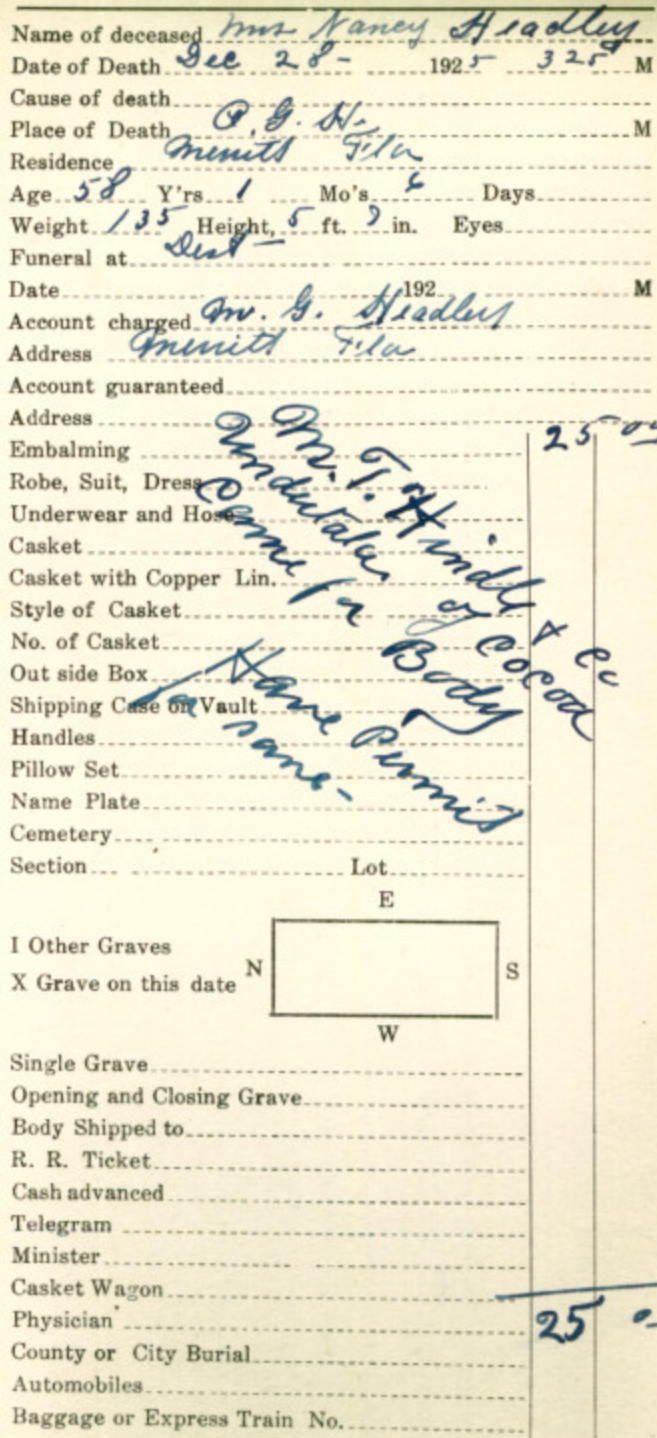 Name of deceased Mrs Nancy Headley
Date of Death Dec 28- 1925 325 M
Cause of death
Place of Death O. G. H. M
Residence Merritt Fla
Age 58 Y'rs 1 Mo's 6 Days
Weight 135 Height, 5 ft. in. Eyes
Funeral at
Date 192 M
Account charged G. Headley
Address Merritt Fla
Account guaranteed
Address
Embalming 25 00
Robe, Suit, Dress
Underwear and Hose
Casket
Casket with Copper Lin.
Style of Casket
No. of Casket
Out side Box
Shipping Case or Vault
Handles
Pillow Set
Name Plate
Cemetery
M. T. Hindle & Co
Undertaker of Cocoa
Came for Body
Have Permit
for same-
Section Lot
E
I Other Graves
X Grave on this date N S
W
Single Grave
Opening and Closing Grave
Body Shipped to
R. R. Ticket
Cash advanced
Telegram
Minister
Casket Wagon
Physician 25
County or City Burial
Automobiles
Baggage or Express Train No.